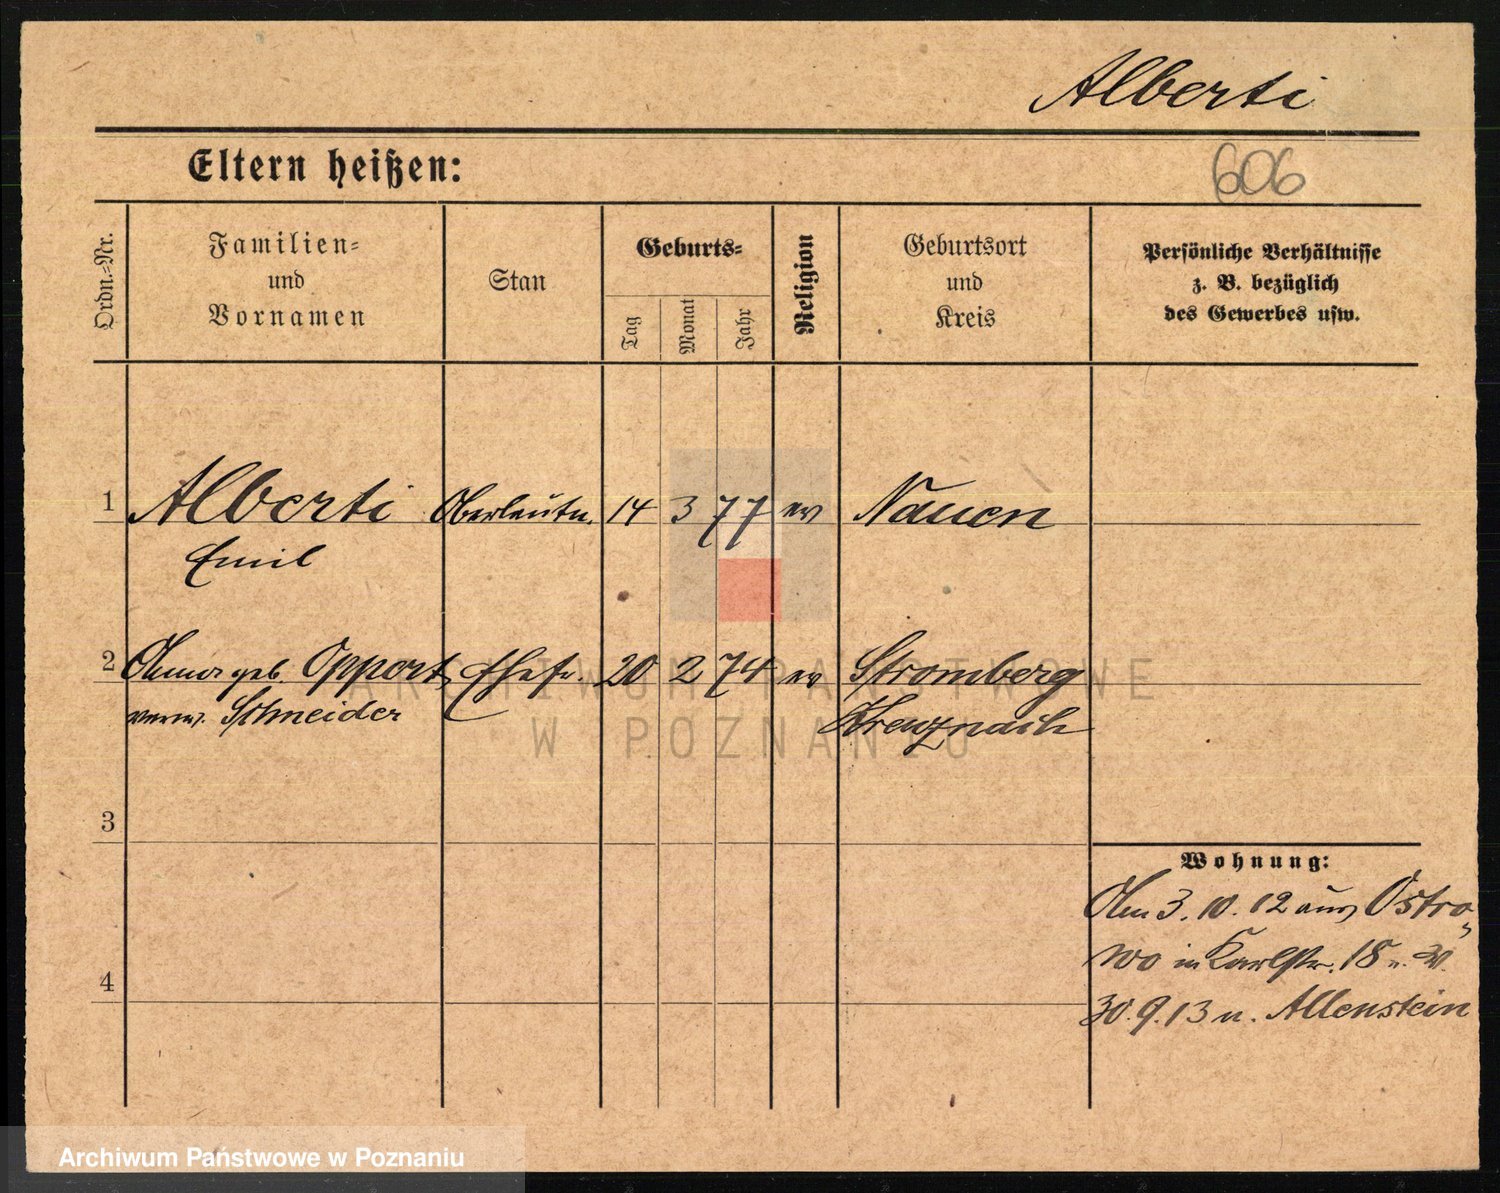 Alberti
Eltern heißen:
606
Ordn.=Nr.
Familien=
und
Vornamen
Stan
Geburts=
Tag
Monat
Jahr
Religion
Geburtsort
und
Kreis
Persönliche Verhältnisse
z. B. bezüglich
des Gewerbes usw.
1 Alberti Oberleutn. 14 3 77 ev Nauen
Emil
2 geb. Oppert Ehefr. 20 2 74 ev Stromberg
verw. Schneider Kreuznach
3
4
Wohnung:
Am 3. 10. 12 aus Ostro
wo in Karlstr. 18
30. 9. 13 n. Allenstein
ARCHIWUM PAŃSTWOWE
W POZNANIU
Archiwum Państwowe w Poznaniu